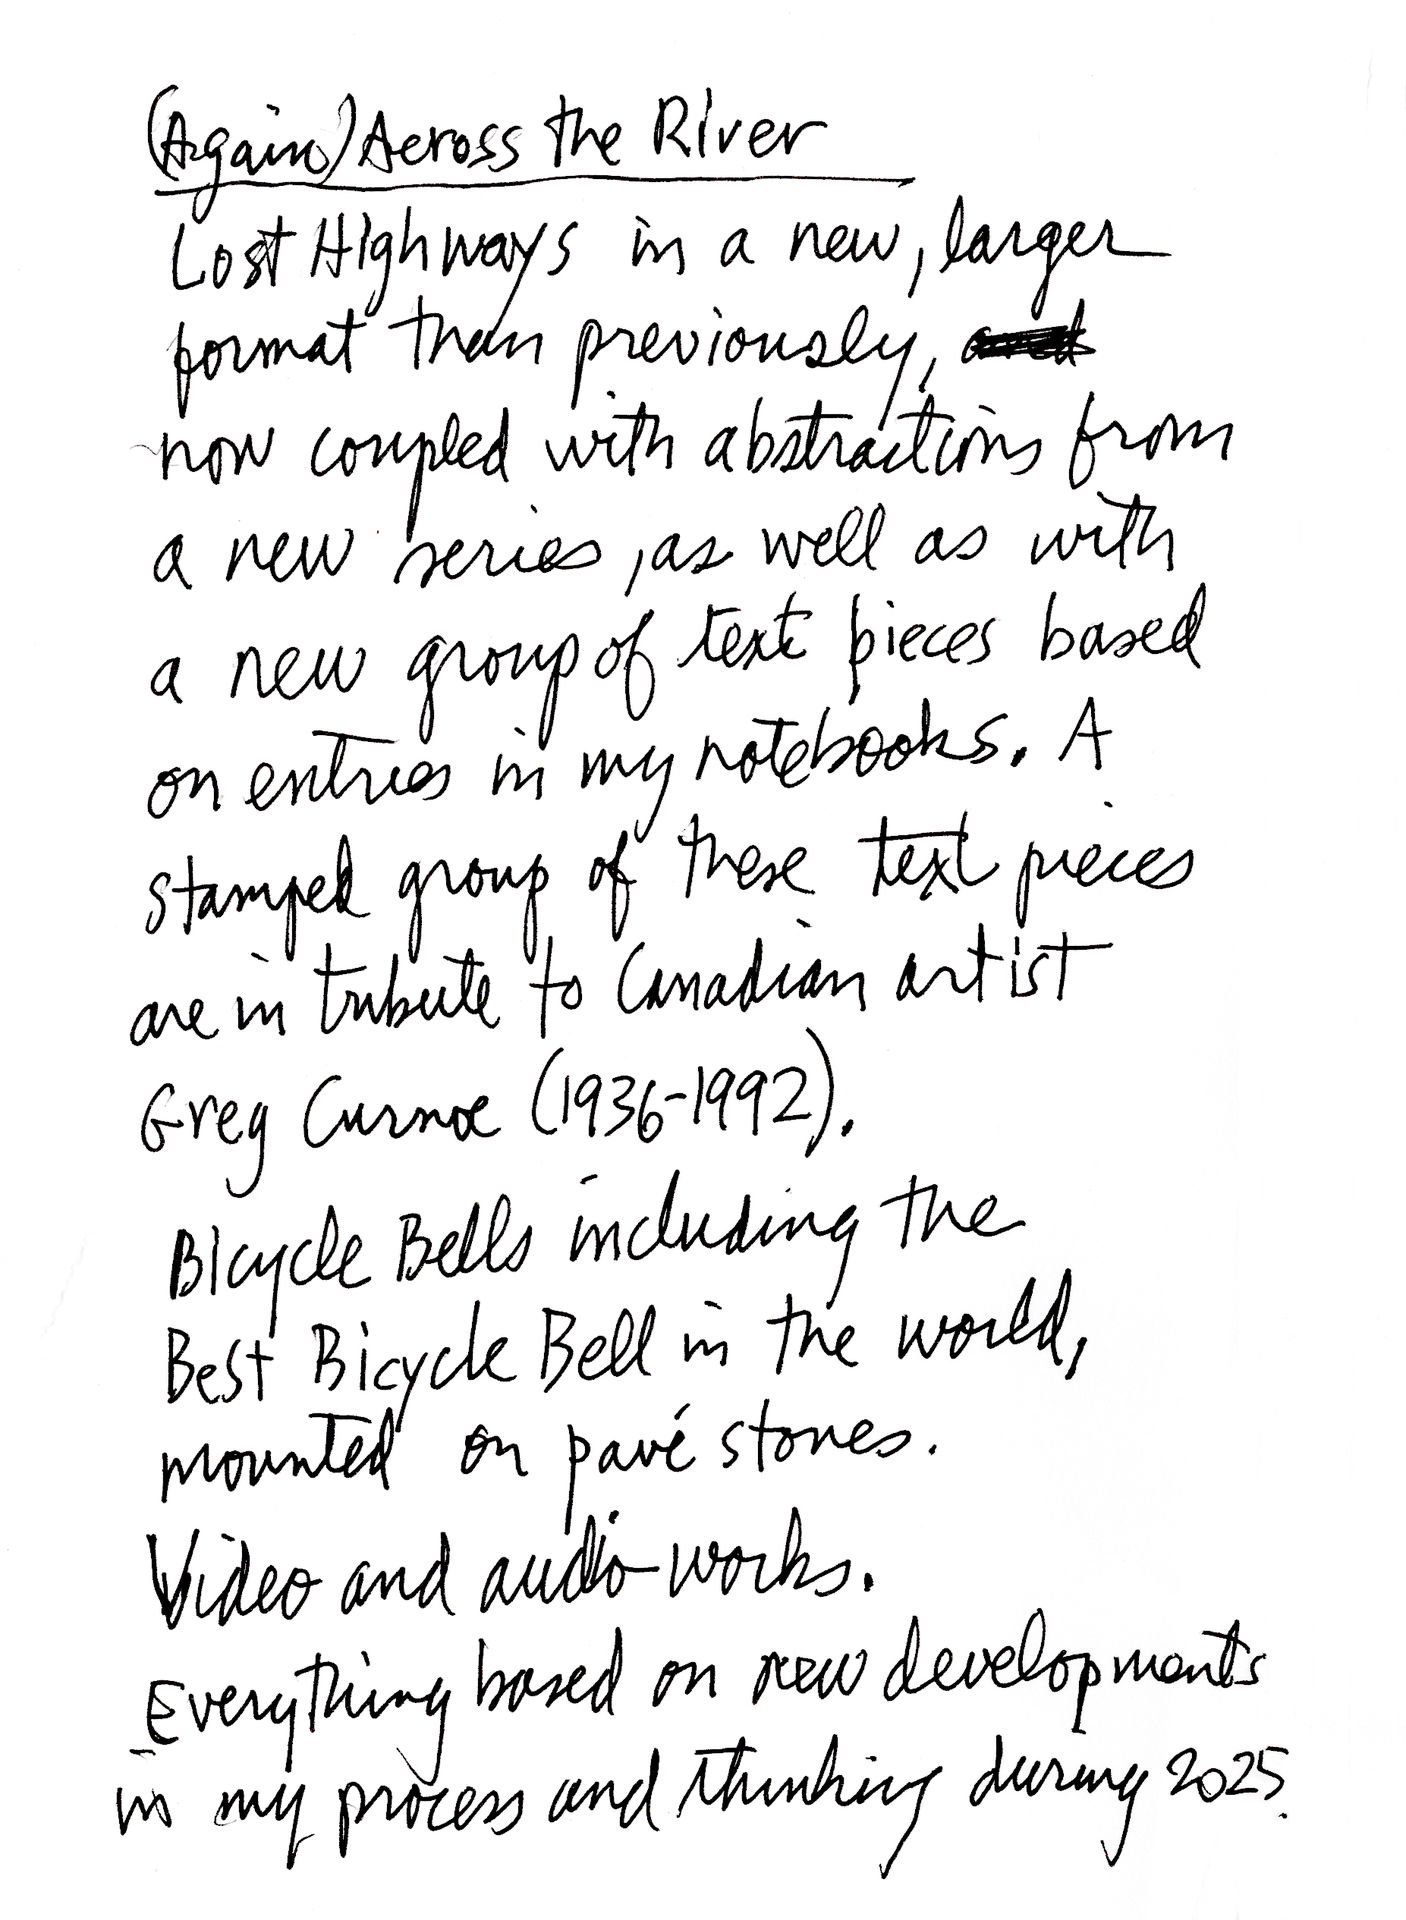 (Again) Across the River
Lost Highways in a new, larger
format than previously,
now coupled with abstractions from
a new series, as well as with
a new group of text pieces based
on entries in my notebooks. A
stamped group of these text pieces
are in tribute to Canadian artist
Greg Curnoe (1936-1992).
Bicycle Bells including the
Best Bicycle Bell in the world,
mounted on pavé stones.
Video and audio works.
Everything based on new developments
in my process and thinking during 2025.